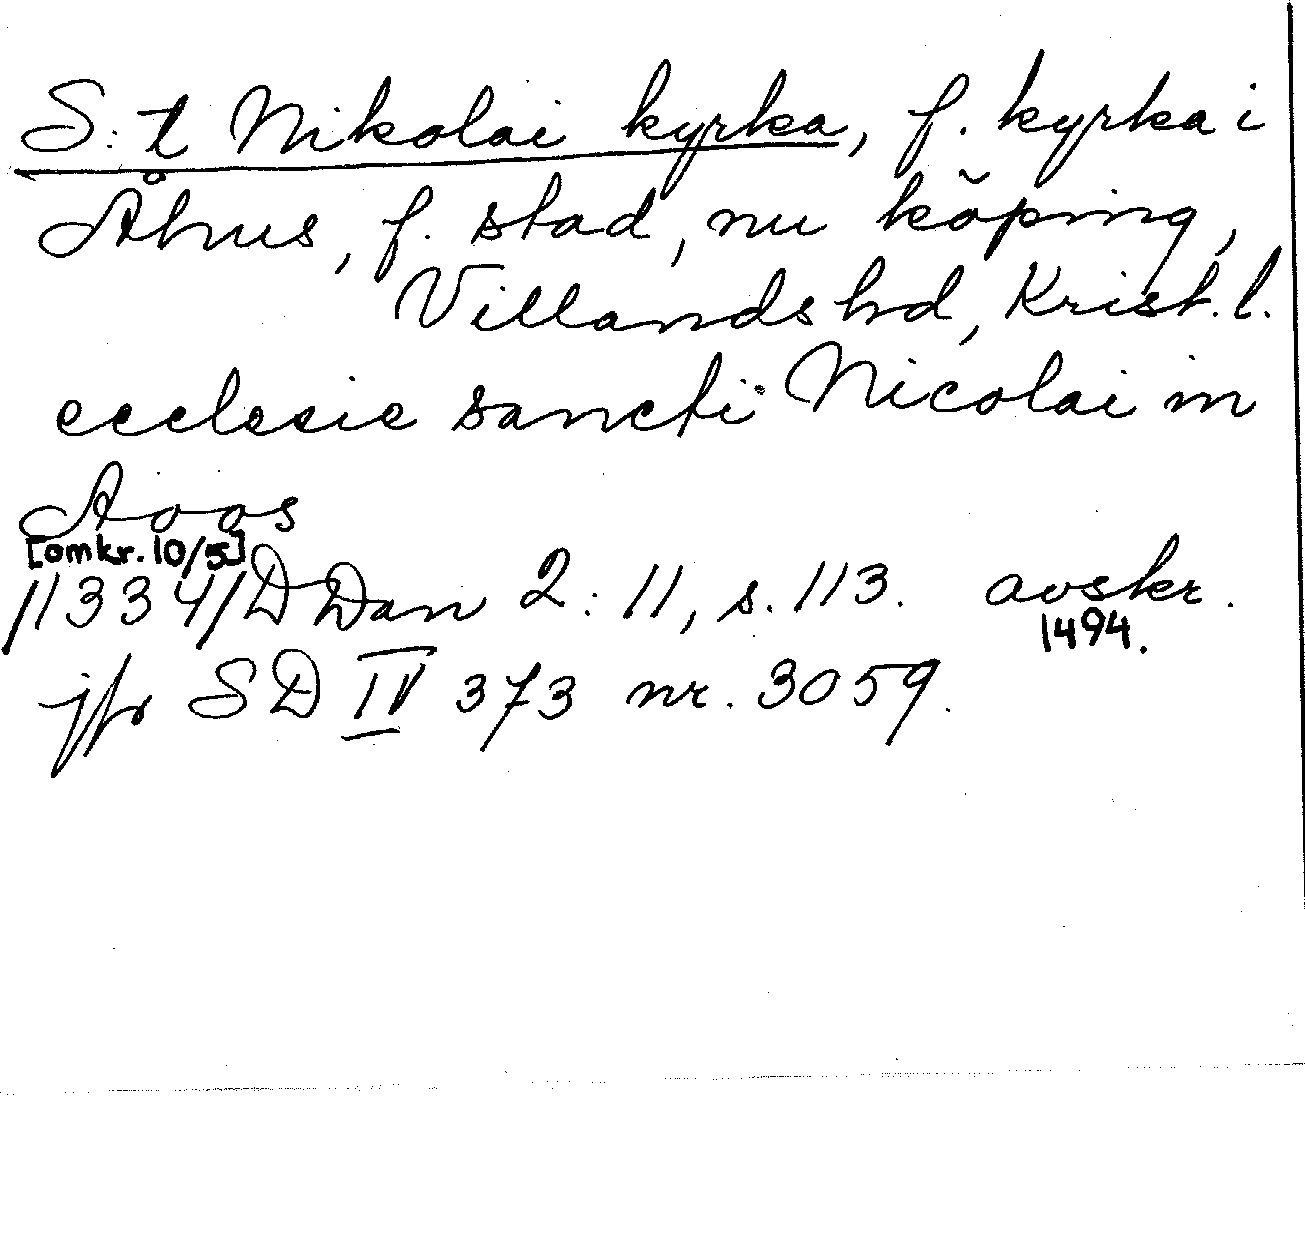 S:t Nikolai kyrka, f. kyrka i
Åhus, f. stad, nu köping,
Villands hd, Krist. l.
ecclesie sancti Nicolai in
Aoos
[omkr. 10/5]
/1334/ DDan 2:11, s. 113. avskr.
1494.
jfr SD IV 373 nr. 3059.